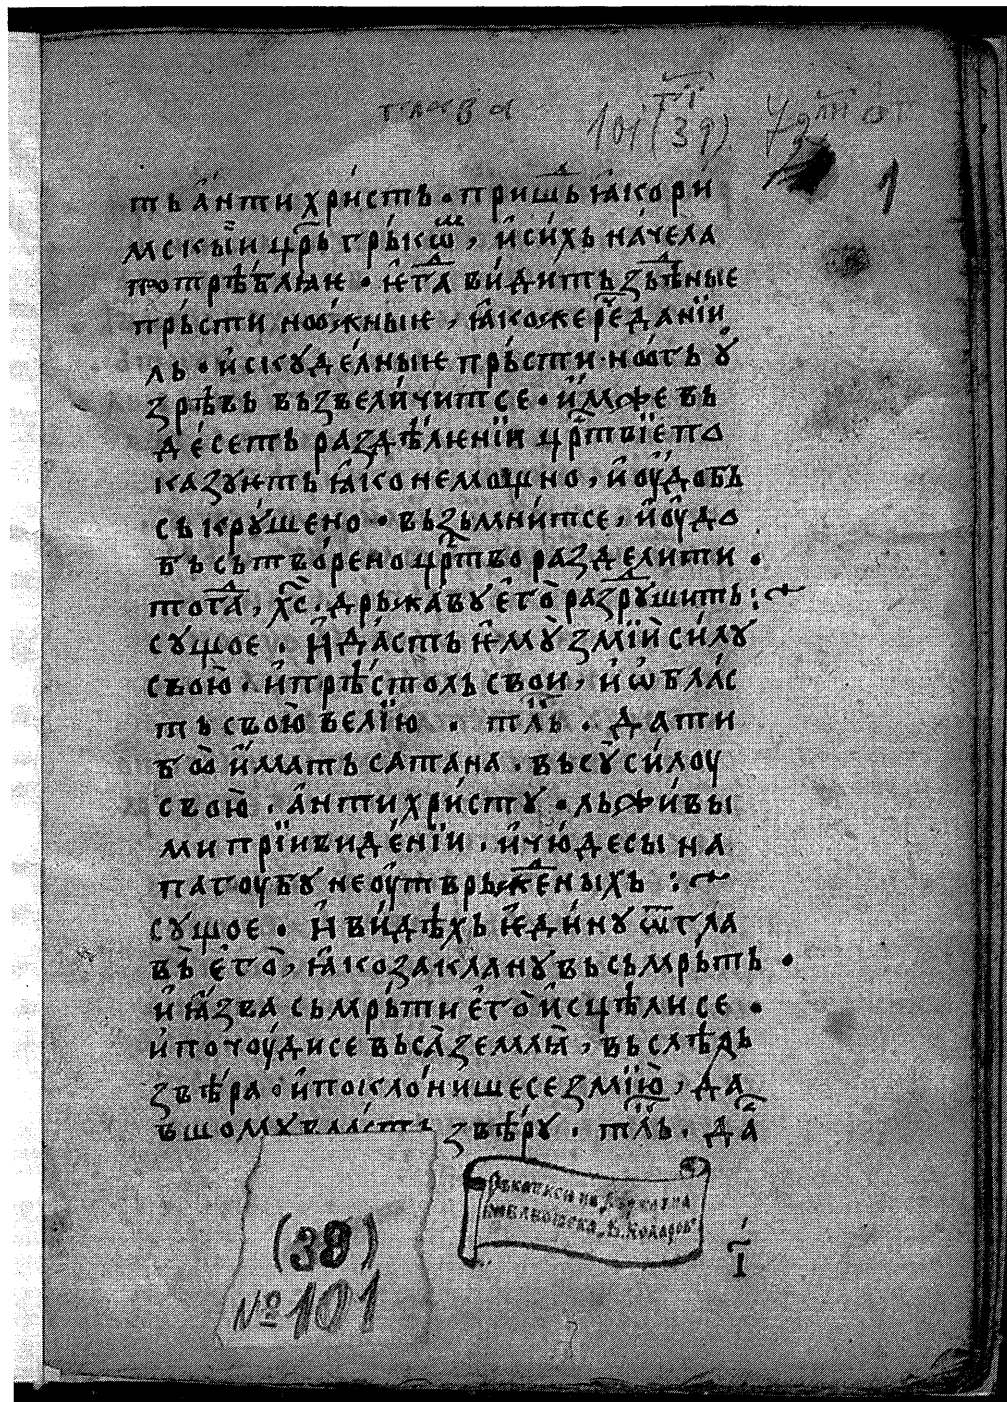 глава
101 (39)
1
ть а҆нтихрі́сть · приш҇ь ꙗ҆ко ри́
мскыи цр҃ь грь́кѡм, и҆ си́хь на́чела
потрѣблꙗѥ · ѥ҆гда ви́дить звѣ́ные
прь́сти но́жные, ꙗ҆коже ре҇ данїи
ль · и҆ скꙋде́лные прь́сти · но ть ꙋ҆
зрѣвь възвели́чит се · и҆мже вь
де́сеть разⷣѣлѥнїи цр҃твїе по
казꙋють ꙗ҆ко немощно, и҆ оу҆добь
ськрꙋ́шено · възьмни́т се, и҆ оу҆до
бь сьтво́рено цр҃тво разделити ·
тогда, хс҃ · дрьжавꙋ е҆го̀ разрꙋшить :~
сꙋщое · И҆ да́сть ѥ҆мꙋ̀ змїи̏ си́лꙋ
свою̀ · и҆ прѣ́столь свои, и҆ ѡ҆бла́с
ть свою̀ велїю · тл҃ь · дати
бо и҆мать сатана · вьсꙋ̀ си́лоу
свою̀ · а҆нтихри́стꙋ · льжи́вы
ми прїивиде́нїи · и҆ чю́десы на
пагоубꙋ неоу҆тврьж҇еныхь :~
сꙋщое · И҆ ви́дѣхь ѥ҆ди́нꙋ ѿ гла
вь̀ е҆го̀, ꙗ҆ко закланꙋ вь сьмрь́ть ·
и҆ ꙗ҆́зва сьмрь́ти е҆го̀ и҆сцѣли се ·
и҆ почоу́ди се вьса̀ землꙗ̀, вь слѣ́дь
звѣ́ра · и҆ поклони́ше се змїю̀, да
вшомꙋ власть звѣ́рꙋ · тл҃ь · да
Рѫкописи на Държавна
Библиотека „В. Коларов“
(39)
№ 101
ı҃